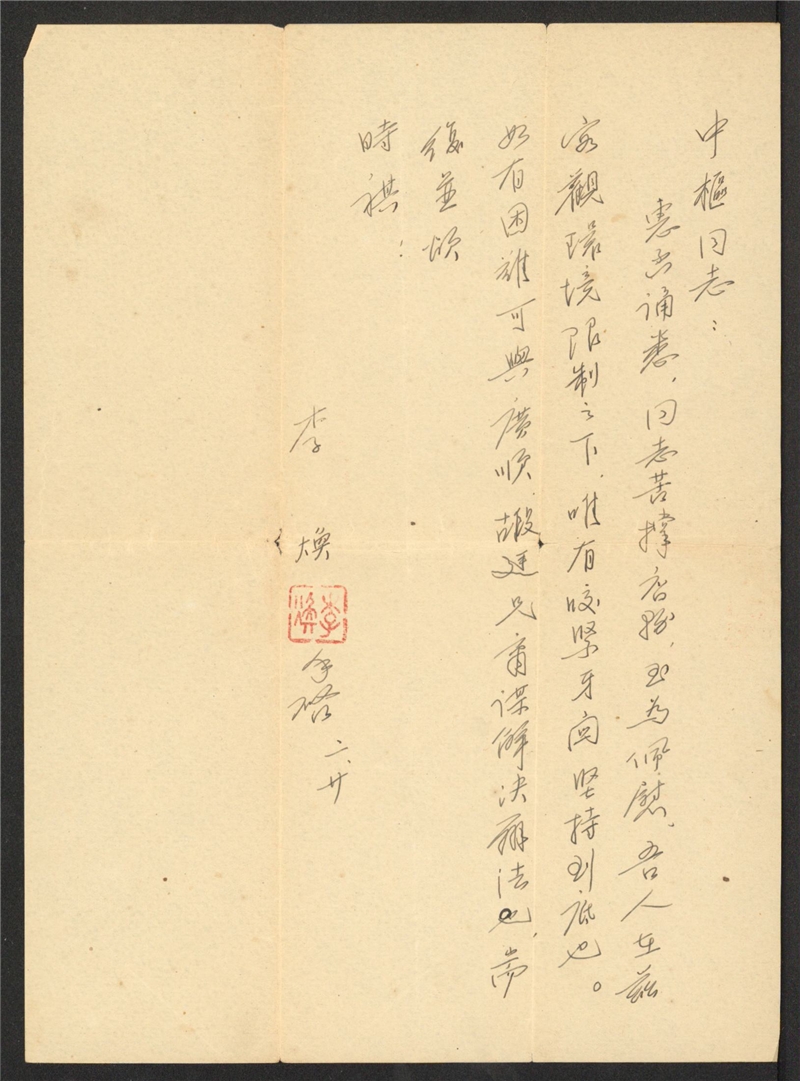 中樞同志：
惠書誦悉，同志苦撐店務，至為佩慰，吾人在茲
客觀環境限制之下，唯有咬緊牙関堅持到底也。
如有困難可與廣順、嘏廷兄商謀解決辦法也，耑
復並頌
時祺：
李　煥
李煥
手啓　二、廿